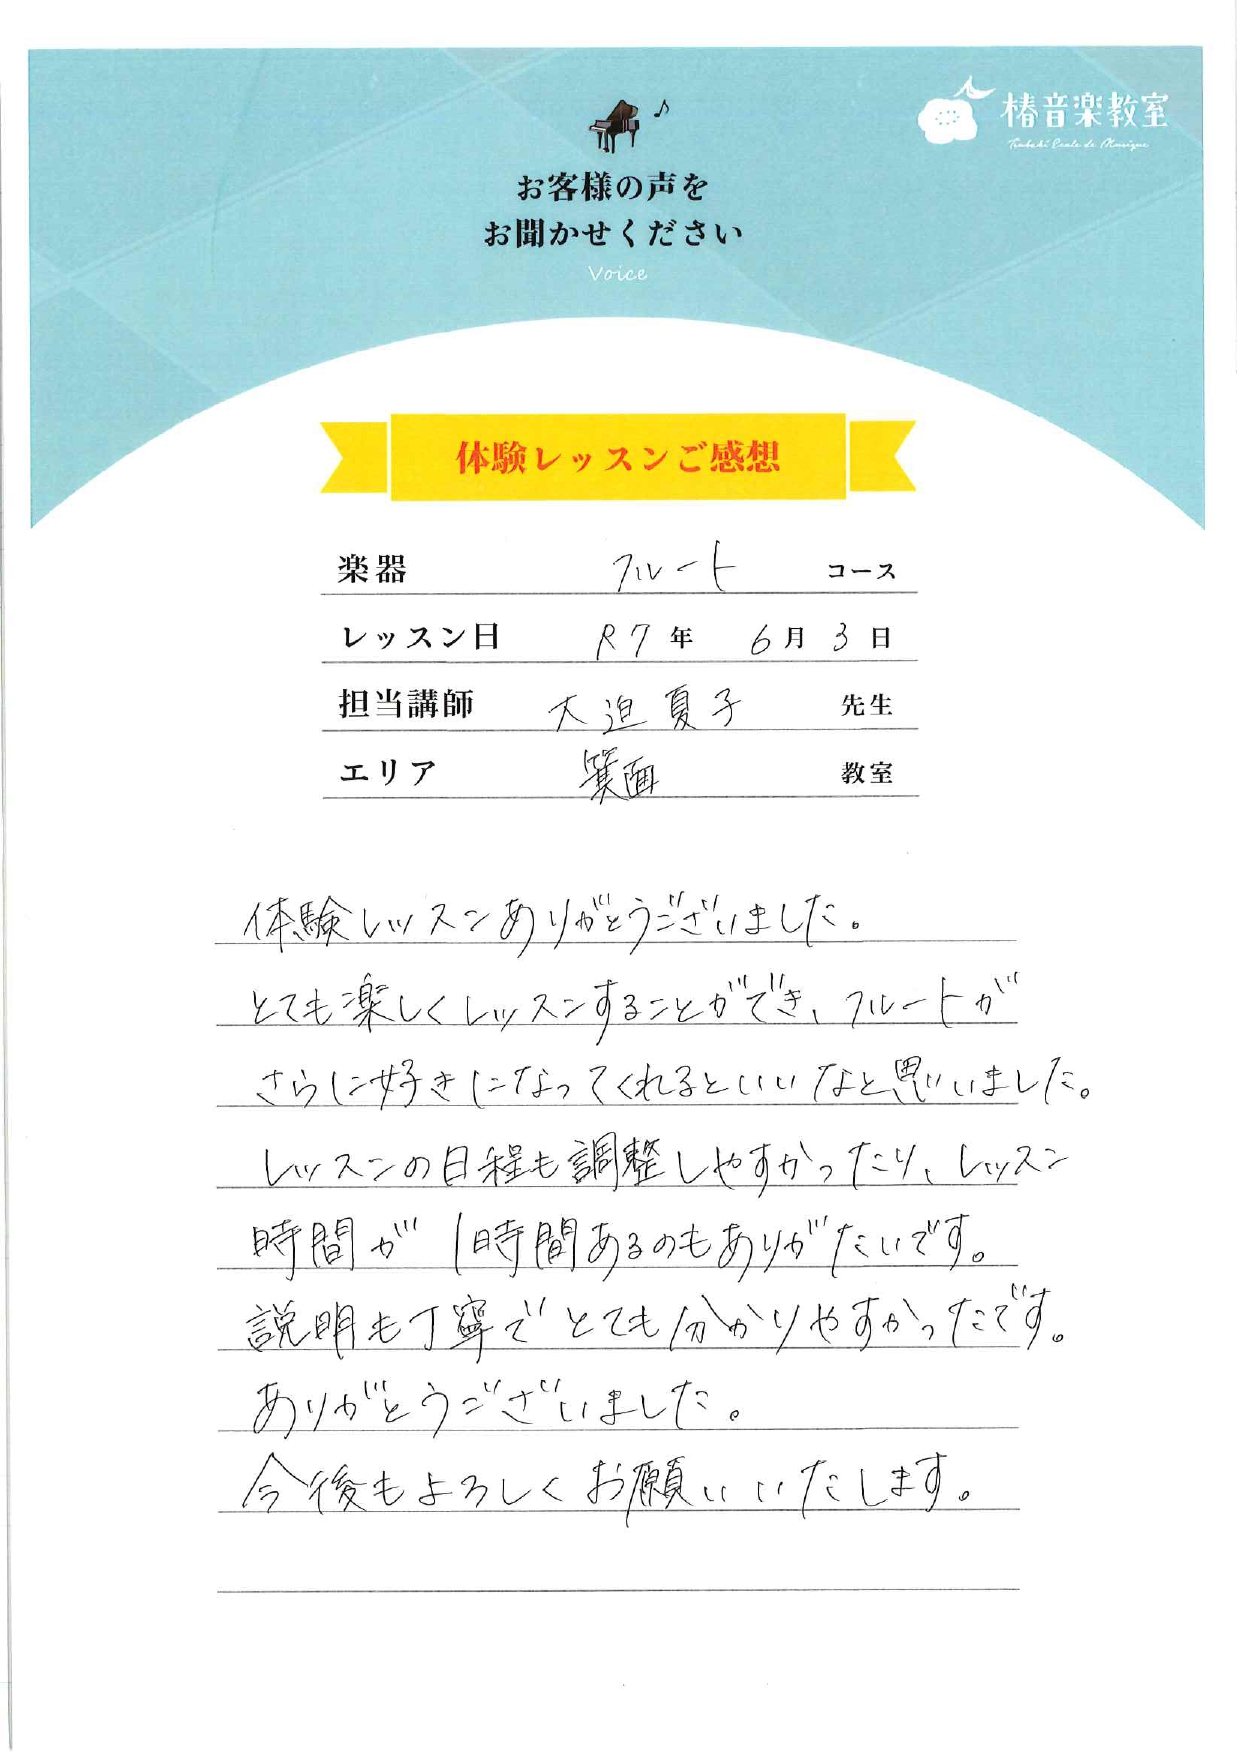 椿音楽教室
Tsubaki Ecole de Musique
お客様の声を
お聞かせください
Voice
体験レッスンご感想
楽器 フルート コース
レッスン日 R7年 6月 3日
担当講師 大迫夏子 先生
エリア 箕面 教室
体験レッスンありがとうございました。
とても楽しくレッスンすることができ、フルートが
さらに好きになってくれるといいなと思いました。
レッスンの日程も調整しやすかったり、レッスン
時間が1時間あるのもありがたいです。
説明も丁寧でとても分かりやすかったです。
ありがとうございました。
今後もよろしくお願いいたします。